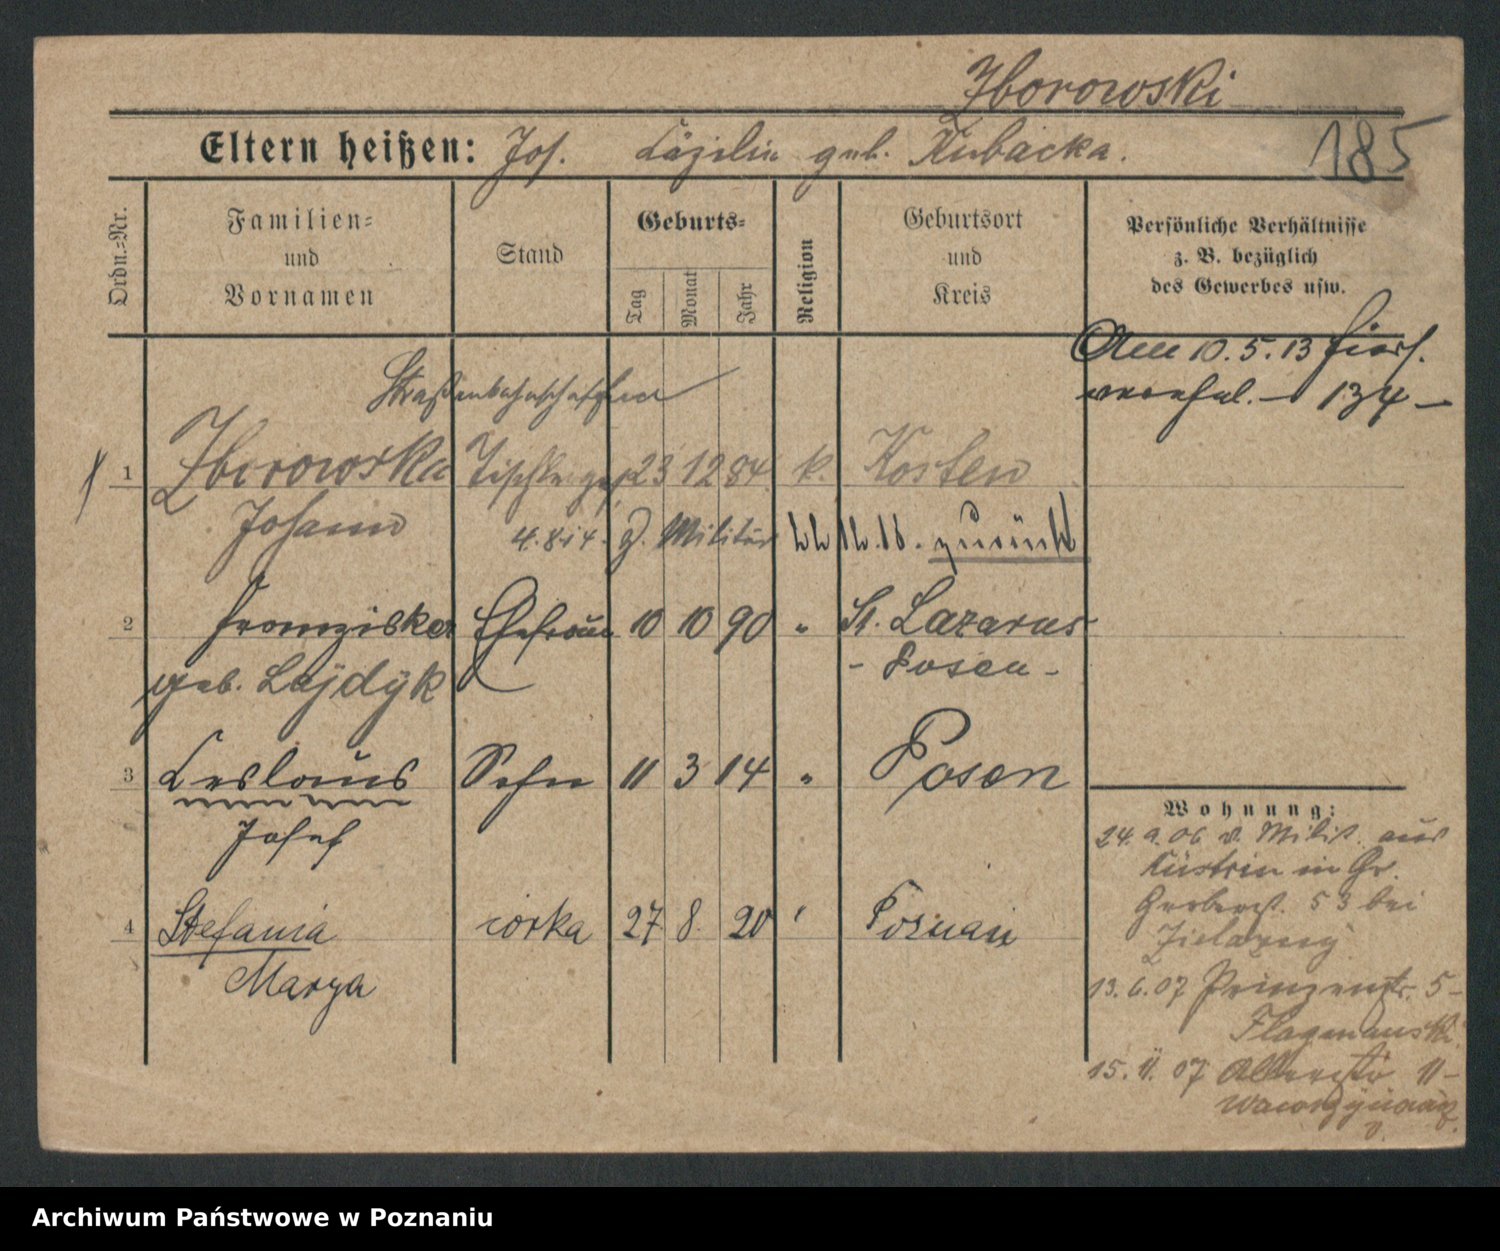 Zborowski
Eltern heißen: Jos. Cäzilie geb. Kubacka.
185
Ordn.-Nr.
Familien- und Vornamen
Stand
Geburts-
Tag
Monat
Jahr
Religion
Geburtsort und Kreis
Persönliche Verhältnisse z. B. bezüglich des Gewerbes usw.
Am 10. 5. 13 hiers.
verehel. – 134 –
Straßenbahnschaffner
1 Zborowski Tischlerges. 23 12 84 k. Kosten
Johann 4.8.14. z. Militär 22 12.18. zurück
2 Franziska Ehefrau 10 10 90 " St. Lazarus
geb. Lajdyk - Posen -
3 Ceslaus Sohn 11 3 14 " Posen
Josef
4 Stefania córka 27 8. 20 " Poznań
Marya
Wohnung:
24. 9. 06 v. Milit. aus
Küstrin in Gr.
Gerberst. 53 bei
13. 6. 07 Prinzenstr. 5 -
15. 11. 07 11 -
Archiwum Państwowe w Poznaniu